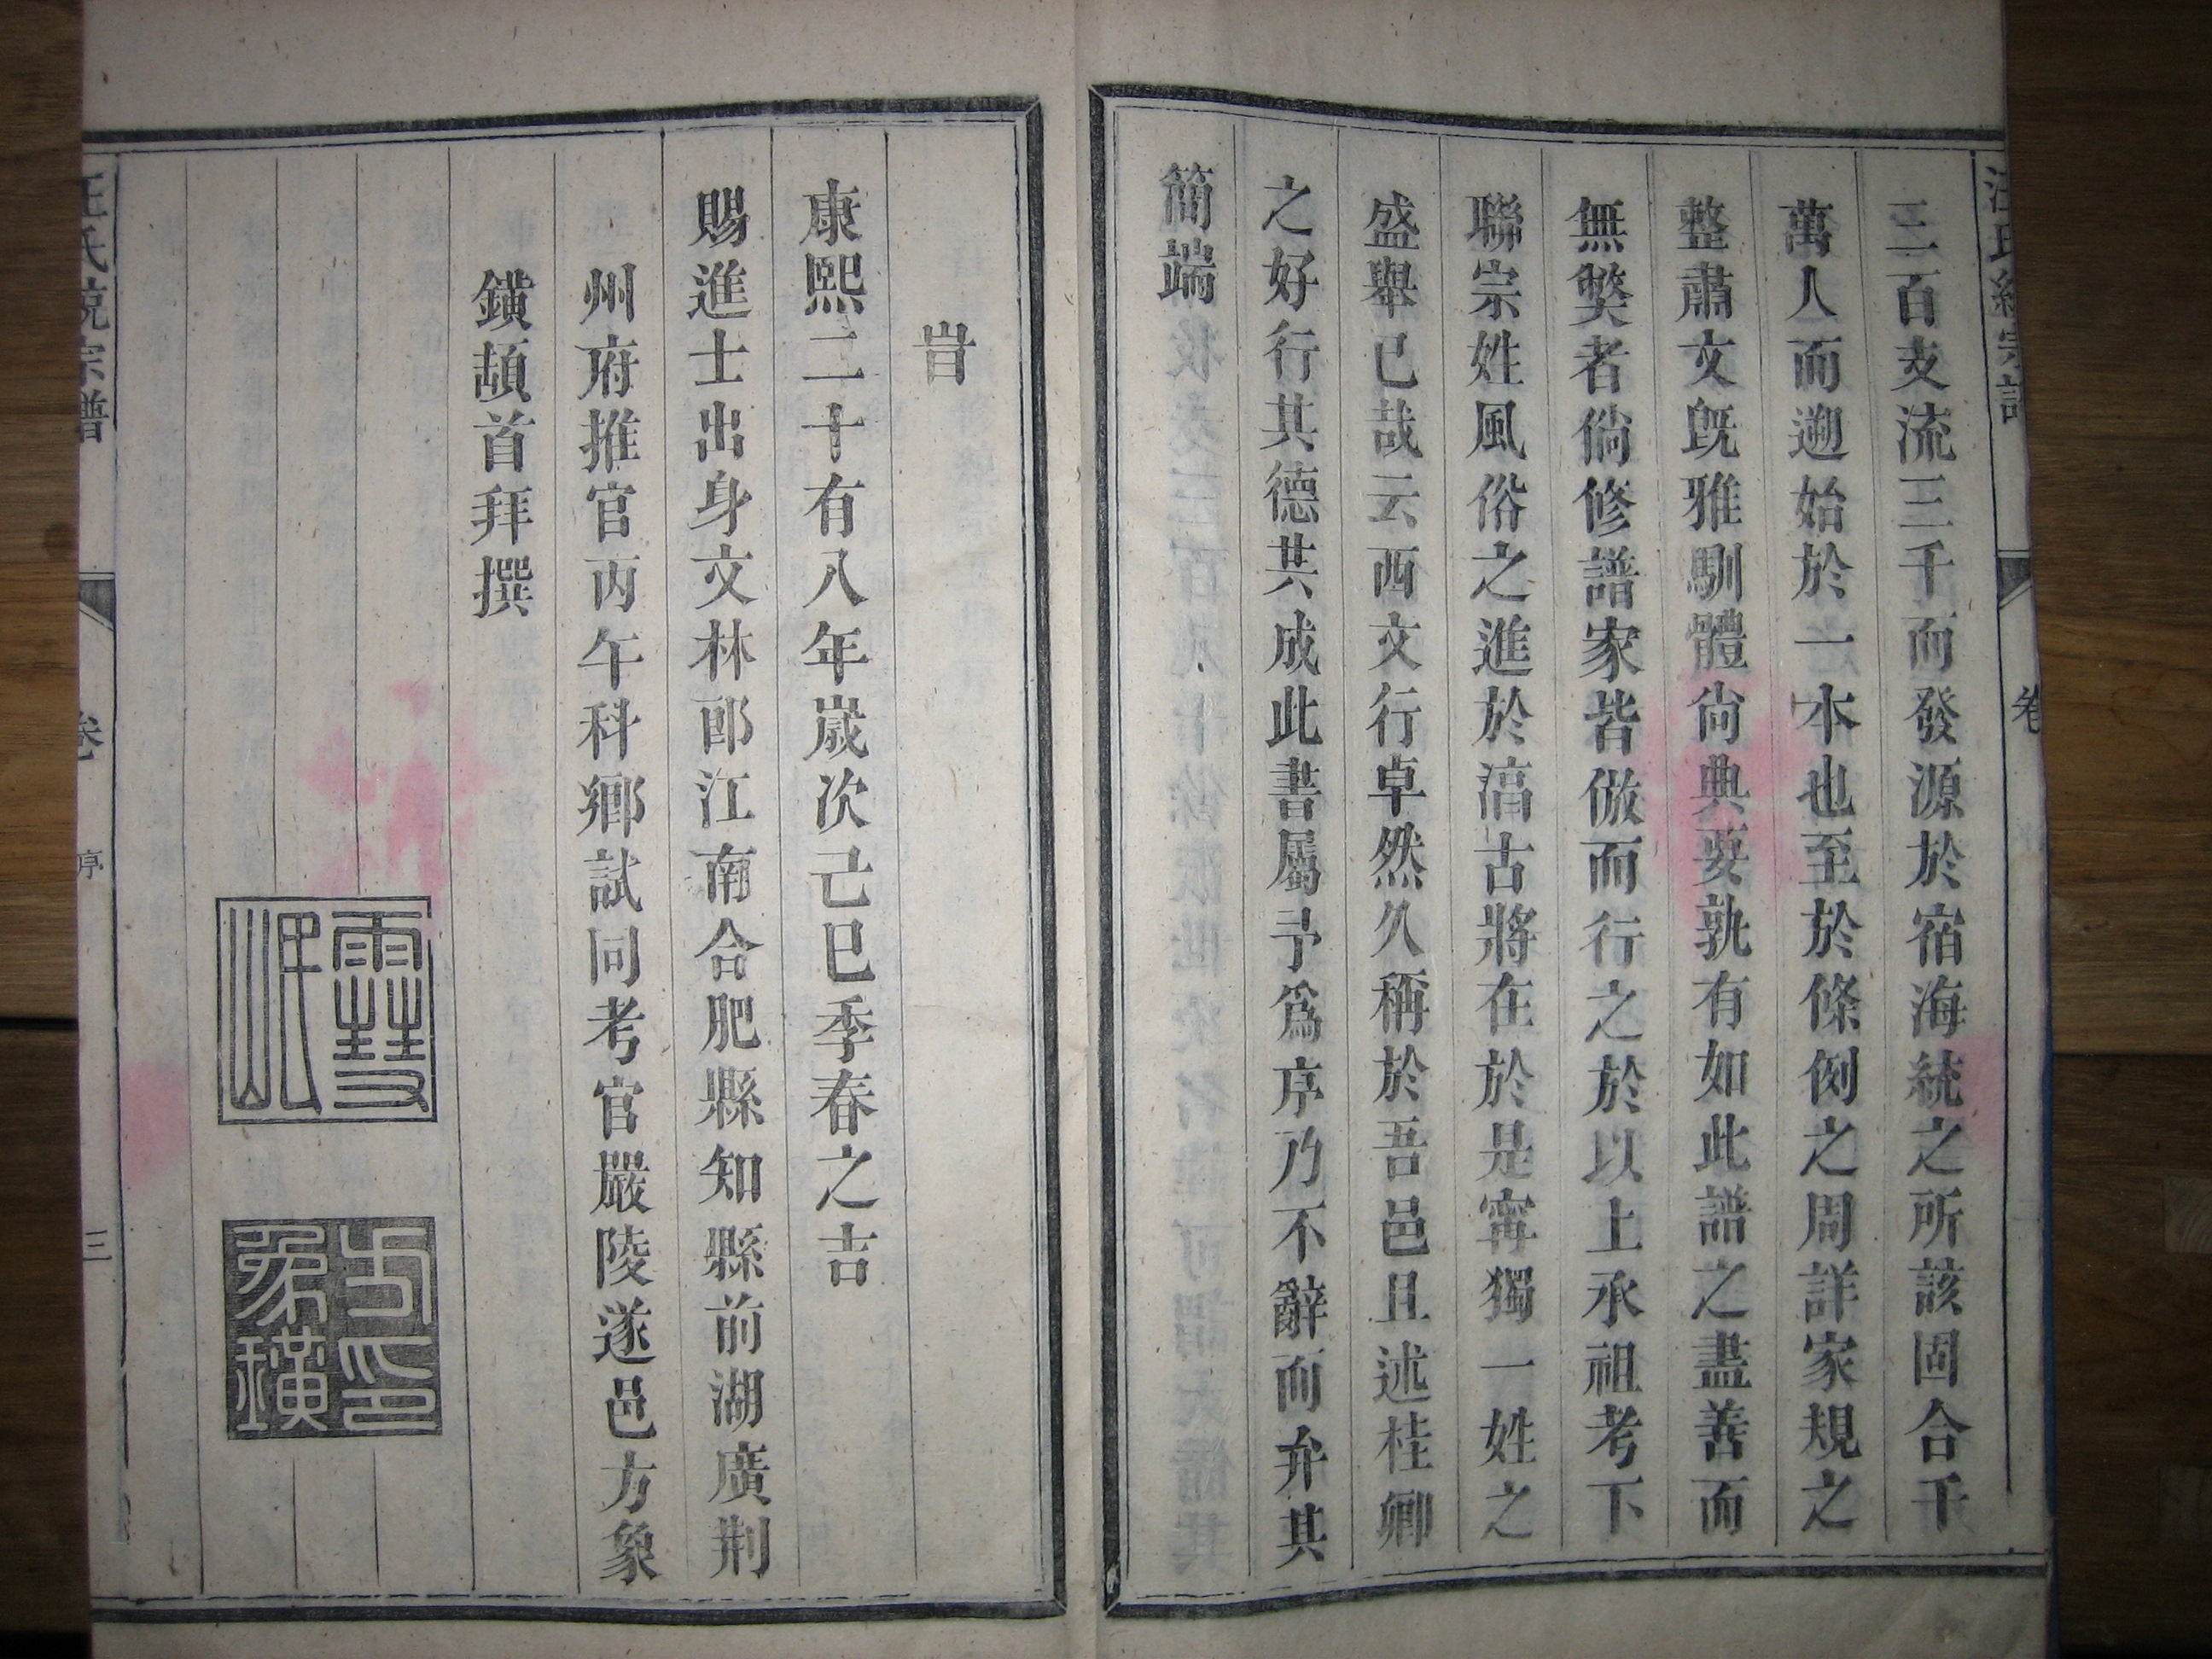 汪氏統宗譜
卷
三百支流三千而發源於宿海統之所該固合千
萬人而遡始於一本也至於條例之周詳家規之
整肅文旣雅馴體尙典要孰有如此譜之盡善而
無獘者倘修譜家皆倣而行之於以上承祖考下
聯宗姓風俗之進於滈古將在於是寗獨一姓之
盛舉已哉云西文行卓然久稱於吾邑且述桂卿
之好行其德共成此書屬予爲序乃不辭而弁其
簡端
旹
康熙二十有八年嵗次己巳季春之吉
賜進士出身文林郎江南合肥縣知縣前湖廣荆
州府推官丙午科鄉試同考官嚴陵遂邑方象
鐄頓首拜撰
雪岷
方印象璜
汪氏統宗譜
卷
序
三